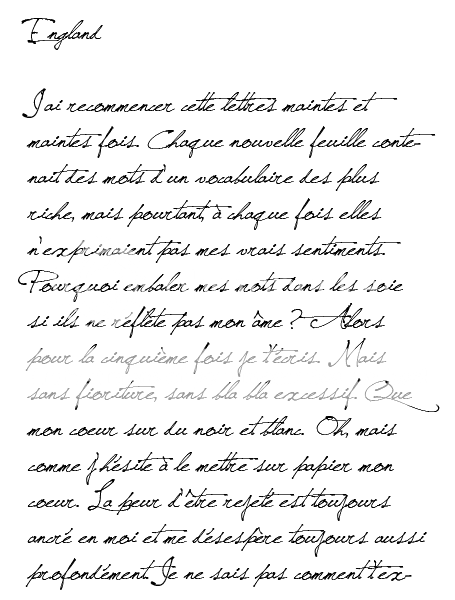 England
J'ai recommencer cette lettres maintes et
maintes fois. Chaque nouvelle feuille conte-
nait des mots d'un vocabulaire des plus
riche, mais pourtant, à chaque fois elles
n'exprimaient pas mes vrais sentiments.
Pourquoi embaler mes mots dans les soie
si ils ne réflète pas mon âme ? Alors
pour la cinquième fois je t'écris. Mais
sans fioriture, sans bla bla excessif. Que
mon coeur sur du noir et blanc. Oh, mais
comme j'hésite à le mettre sur papier mon
coeur. La peur d'être rejeté est toujours
ancré en moi et me désespère toujours aussi
profondément. Je ne sais pas comment t'ex-